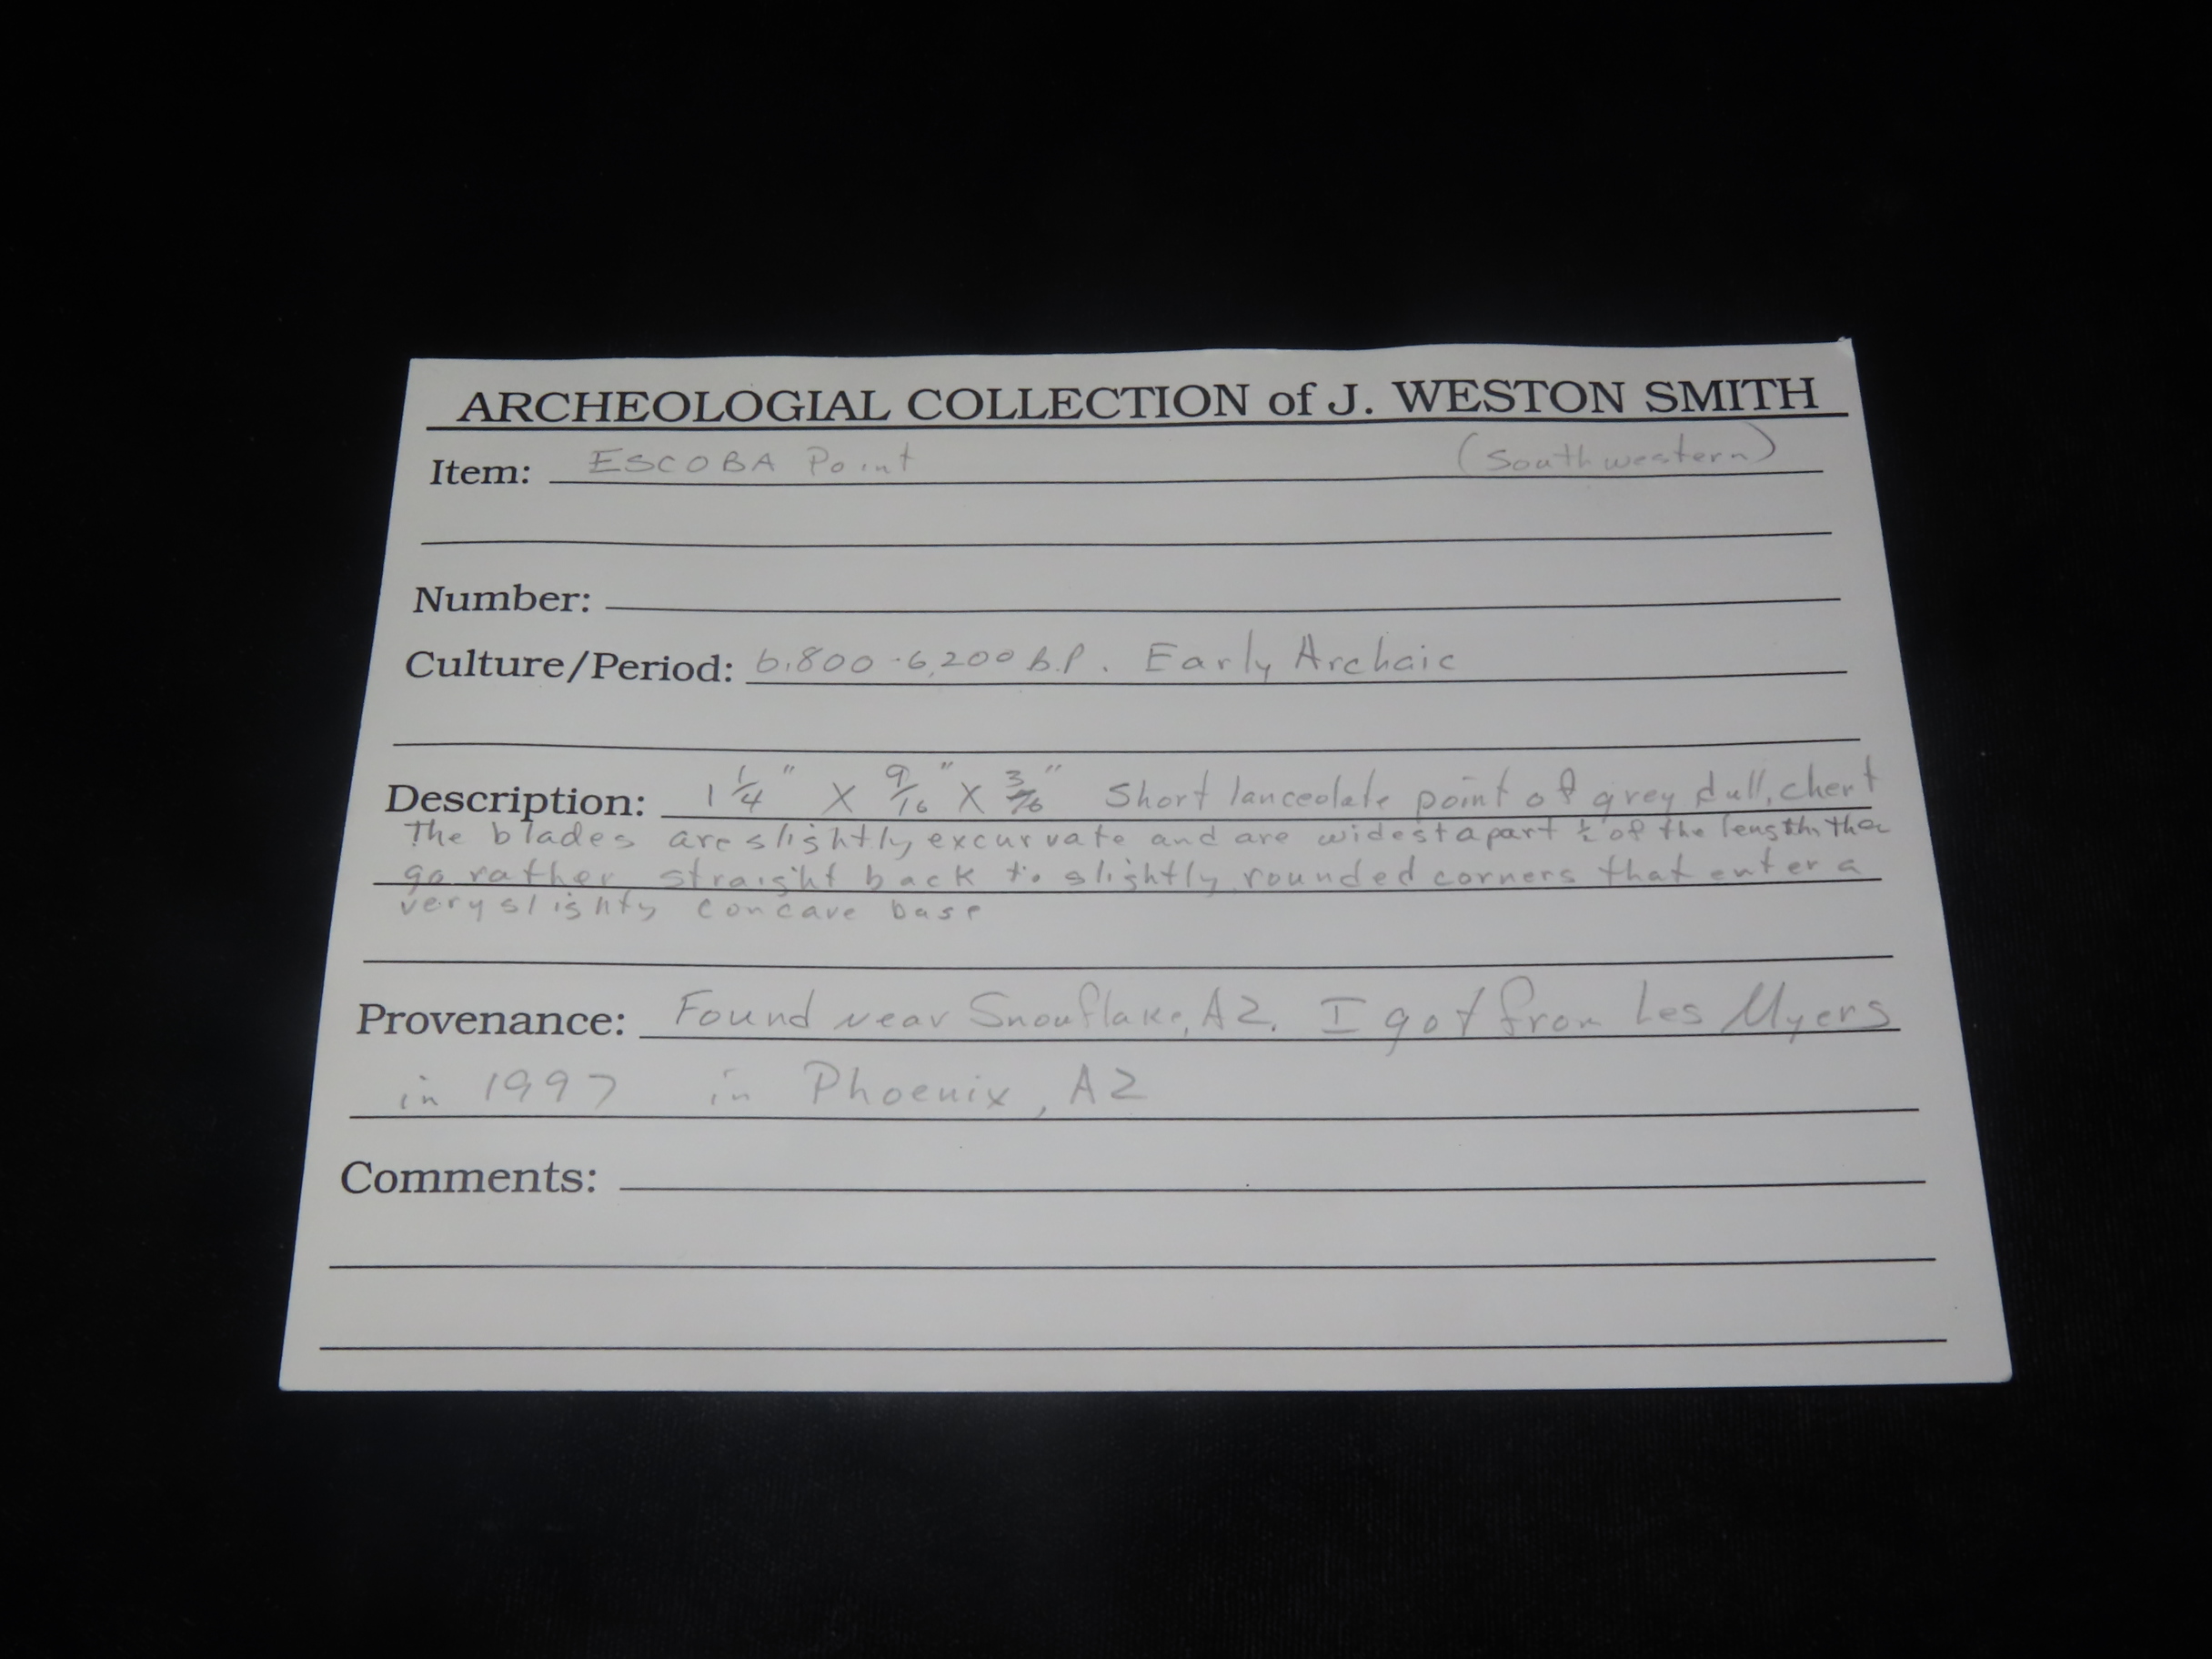 ARCHEOLOGIAL COLLECTION of J. WESTON SMITH
Item: ESCOBA Point (Southwestern)
Number:
Culture/Period: 6,800-6,200 B.P. Early Archaic
Description: 1 1/4" X 9/16" X 3/16" Short lanceolate point of grey dull, chert
The blades are slightly excurvate and are widest apart 1/2 of the length, then
go rather straight back to slightly rounded corners that enter a
very slighty concave base
Provenance: Found near Snowflake, AZ. I got from Les Myers
in 1997 in Phoenix, AZ
Comments: